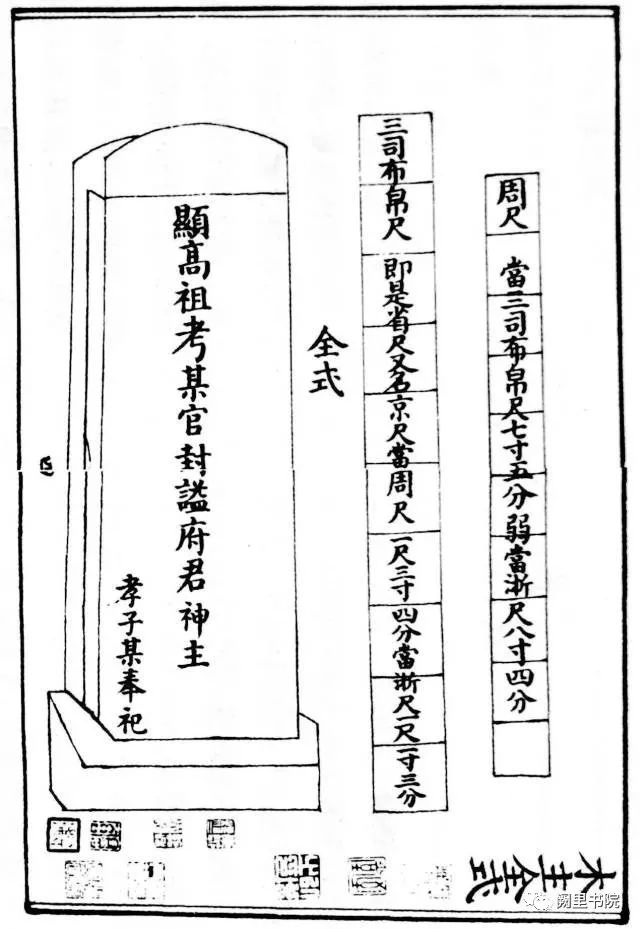 周尺 當三司布帛尺七寸五分弱當浙尺八寸四分
三司布帛尺 即是省尺又名京尺當周尺一尺三寸四分當浙尺一尺一寸三分
全式
顯高祖考某官封謚府君神主
孝子某奉祀
木主全式
阙里书院